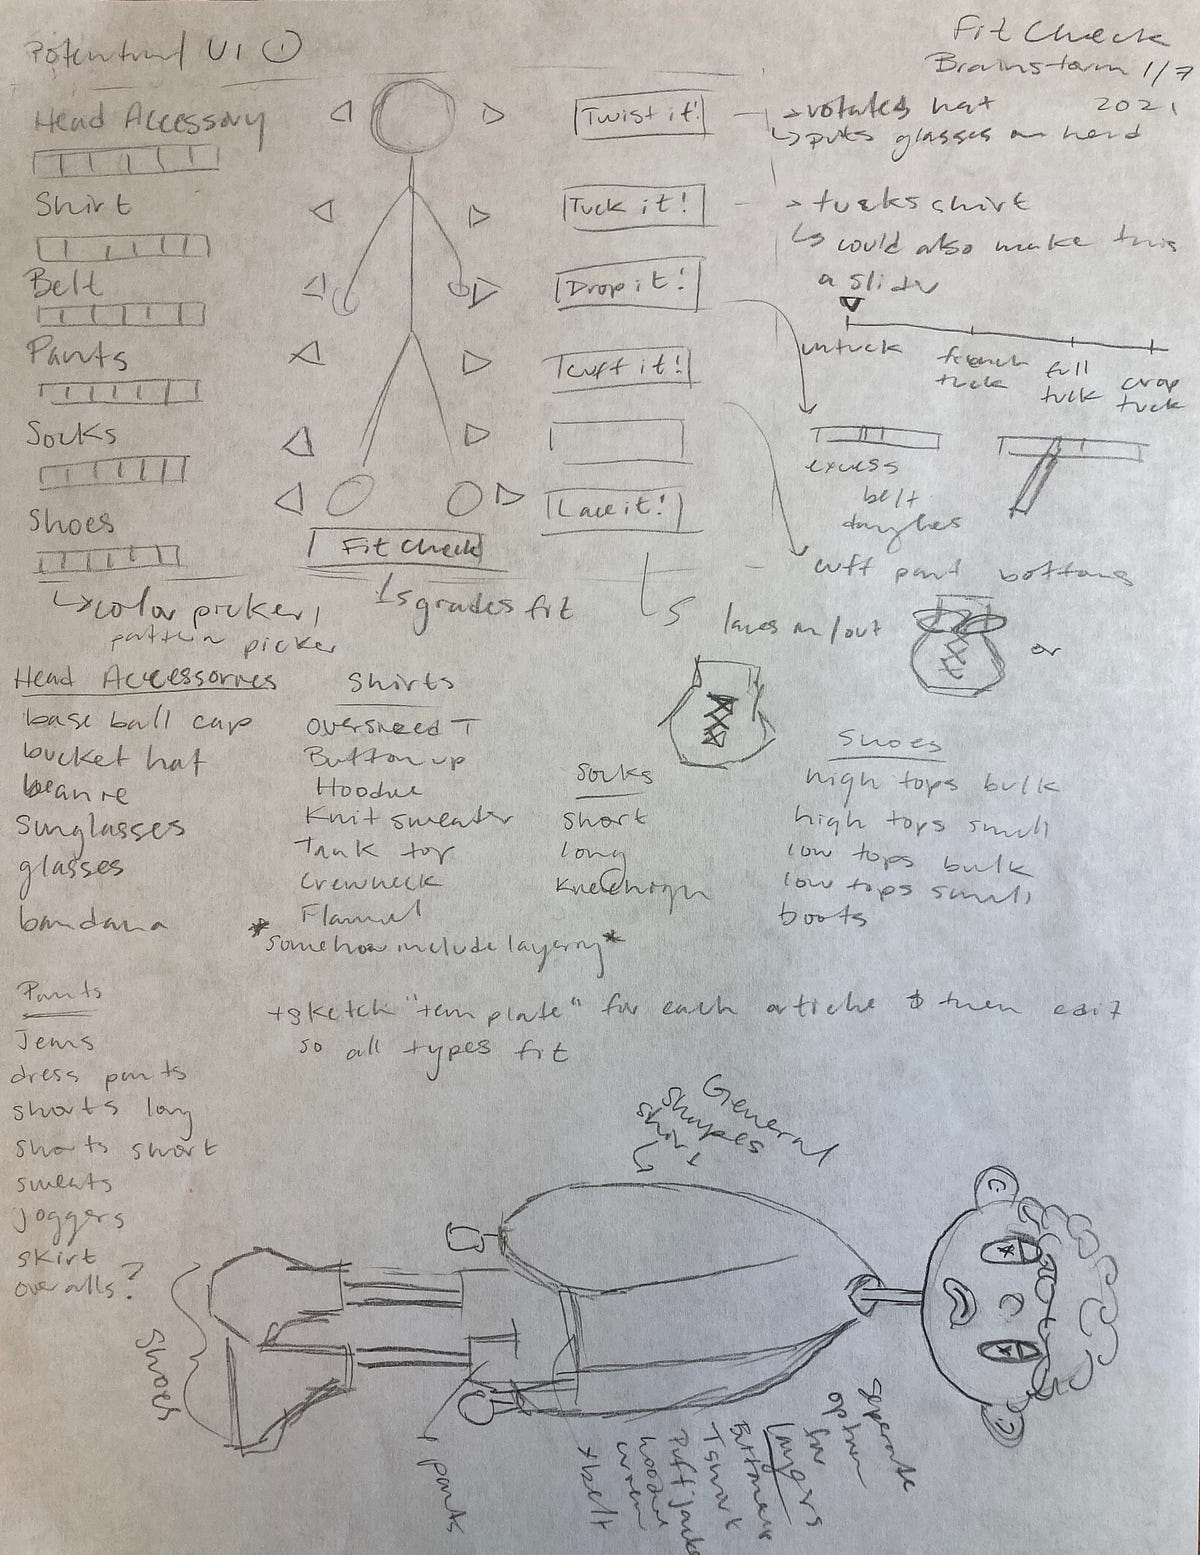 Potential UI ①
Fit Check
Brainstorm 1/7
2021
Head Accessory
Shirt
Belt
Pants
Socks
Shoes
Twist it!
Tuck it!
Drop it!
Cuff it!
Lace it!
Fit Check
→ rotates hat
↳ puts glasses on head
→ tucks shirt
↳ could also make this
a slider
untuck
french
tuck
full
tuck
crop
tuck
excess
belt
dangles
cuff pant bottoms
laces in/out
or
↳ color picker,
pattern picker
↳ grades fit
Head Accessories
base ball cap
bucket hat
beanie
sunglasses
glasses
bandana
Shirts
oversized T
Button up
Hoodie
Knit sweater
Tank top
Crewneck
Flannel
*somehow include layering*
Socks
short
long
Knee high
Shoes
high tops bulk
high tops small
low tops bulk
low tops small
boots
Pants
Jeans
dress pants
shorts long
shorts short
sweats
joggers
skirt
overalls?
→ sketch "template" for each article & then edit
so all types fit
General
shapes
shirt
shoes
pants
separate
option
for
layers
Puff jacket
hoodie
crew
+ belt